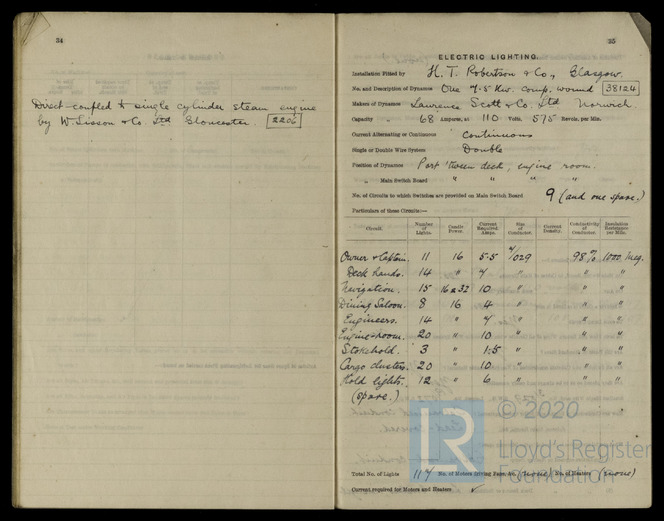 34
Direct-coupled to single cylinder steam engine
by W. Sisson & Co. Ltd Gloucester. 2206
25
ELECTRIC LIGHTING.
Installation Fitted by H. T. Robertson & Co., Glasgow.
No. and Description of Dynamos One 7.5 Kw. Comp. wound 38124
Makers of Dynamos Lawrence Scott & Co. Ltd Norwich.
Capacity " 68 Amperes, at 110 Volts, 575 Revols. per Min.
Current Alternating or Continuous Continuous
Single or Double Wire System Double
Position of Dynamos Port 'tween deck, engine room.
" Main Switch Board " " " "
No. of Circuits to which Switches are provided on Main Switch Board 9 (and one spare.)
Particulars of these Circuits:—
Circuit. Number of Lights. Candle Power. Current Required. Amps. Size of Conductor. Current Density. Conductivity of Conductor. Insulation Resistance per Mile.
Owner & Captain. 11 16 5.5 /029 98% 1000 Meg.
Deck hands. 14 " 7 " " "
Navigation. 15 16 & 32 10 " " "
Dining Saloon. 8 16 4 " " "
Engineers. 14 " 7 " " "
Engine-room. 20 " 10 " " "
Stokehold. 3 " 1.5 " " "
Cargo clusters. 20 " 10 " " "
Hold lights. 12 " 6 " " "
(spare.)
© 2020
LR
Lloyd's Register
Foundation
Total No. of Lights 117 No. of Motors driving Fans, &c. (none) No. of Heaters (none)
Current required for Motors and Heaters